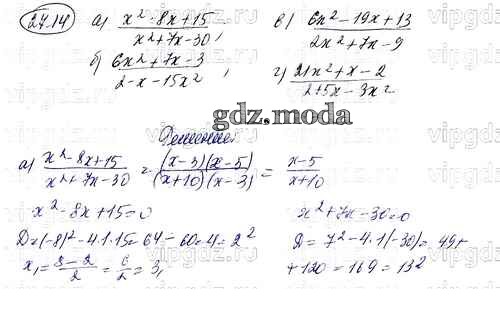 27.14 а) x²-8x+15 / x²+7x-30 , в) 6x²-19x+13 / 2x²+7x-9
б) 6x²+7x-3 / 2-x-15x² , г) 21x²+x-2 / 2+5x-3x²
gdz.moda
Решение
а) x²-8x+15 / x²+7x-30 = (x-3)(x-5) / (x+10)(x-3) = x-5 / x+10
x²-8x+15=0 x²+7x-30=0
D=(-8)²-4·1·15=64-60=4=2² D=7²-4·1(-30)=49+
x₁=8-2/2=6/2=3, +120=169=13²